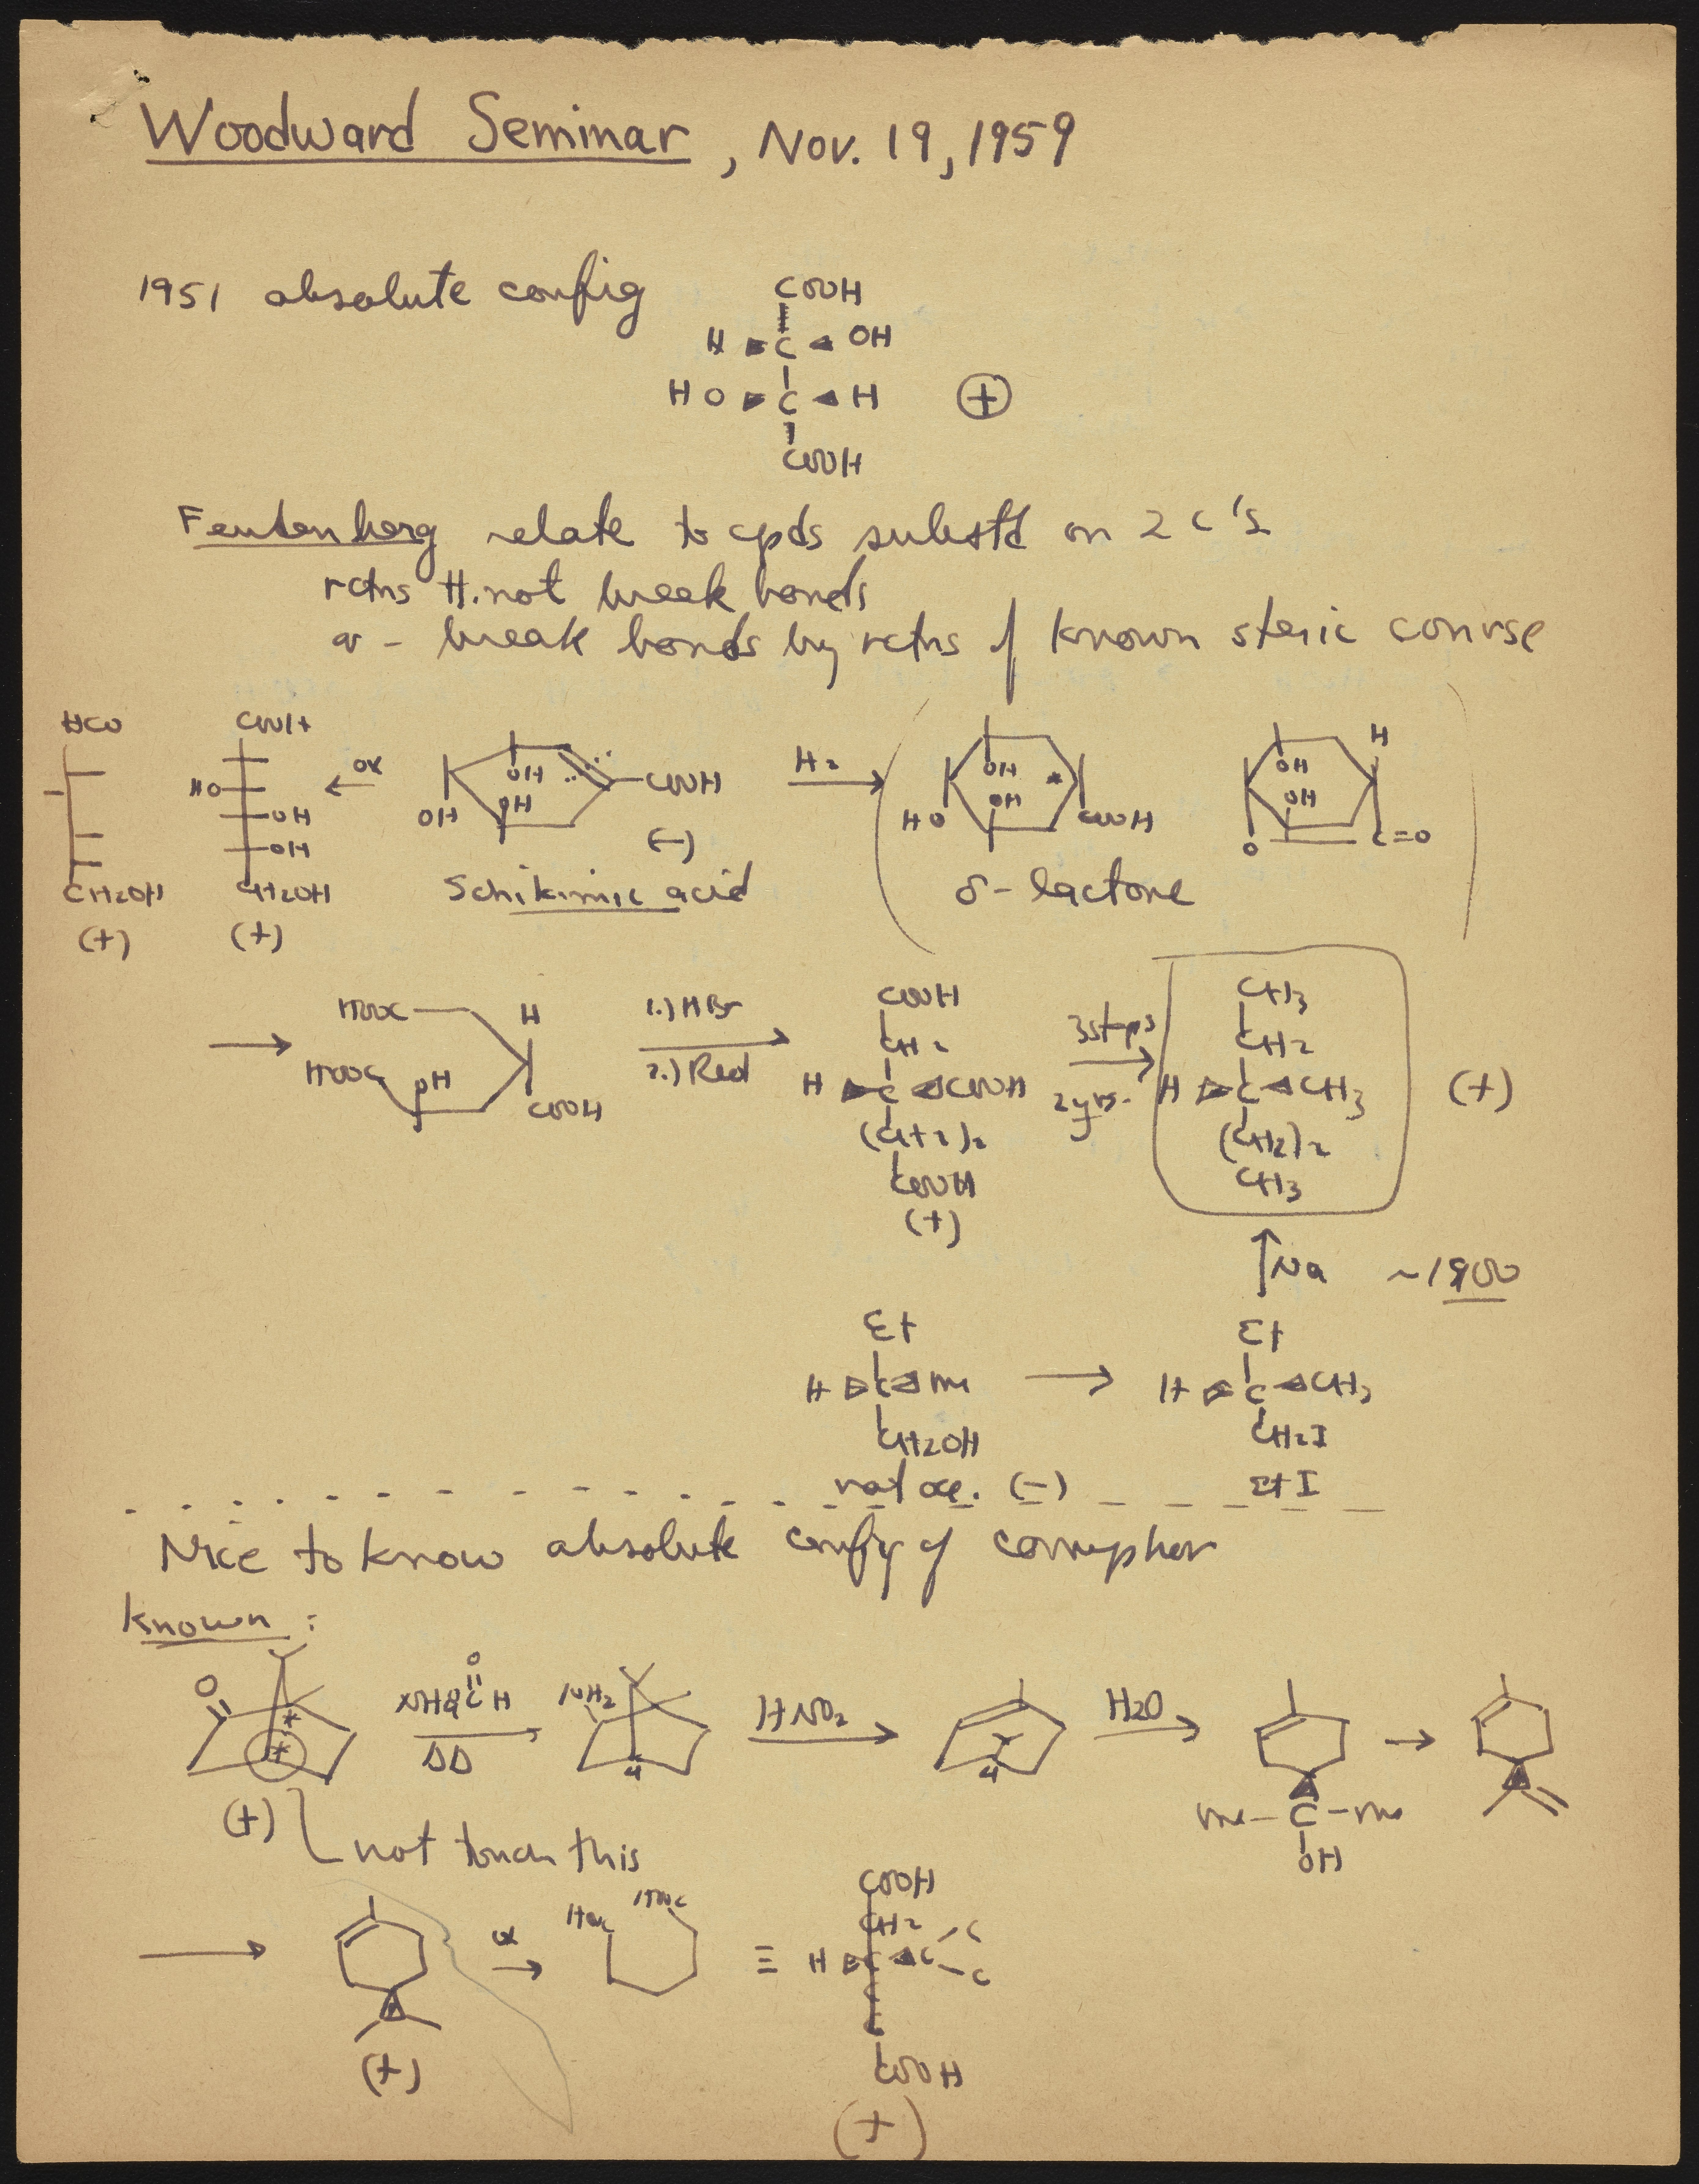 Woodward Seminar, Nov. 19, 1959
1951 absolute config
COOH
H C OH
HO C H ⊕
COOH
Feudenberg relate to cpds substd on 2 C's
rctns tt. not break bonds
or - break bonds by rctns of known steric course
HCO
CH2OH
(+)
COOH
HO
OH
OH
CH2OH
(+)
ox
OH
OH
OH
COOH
(-)
Schikimic acid
H2
OH
OH
HO
COOH
δ-lactone
H
OH
OH
O
C=O
HOOC
HOOC
OH
H
COOH
1.) HBr
2.) Red
COOH
CH2
H C COOH
(CH2)2
COOH
(+)
3 steps
2 yrs.
CH3
CH2
H C CH3
(CH2)2
CH3
(+)
Na ~1900
Et
H C Me
CH2OH
nat occ. (-)
Et
H C CH3
CH2I
EtI
Nice to know absolute config of camphor
Known:
O
(+)
not touch this
O
H
ΔΔ
NH2
4
HNO2
4
H2O
Me-C-Me
OH
(+)
ox
HOOC
HOOC
≡
COOH
CH2
H C C
C
C
COOH
(+)